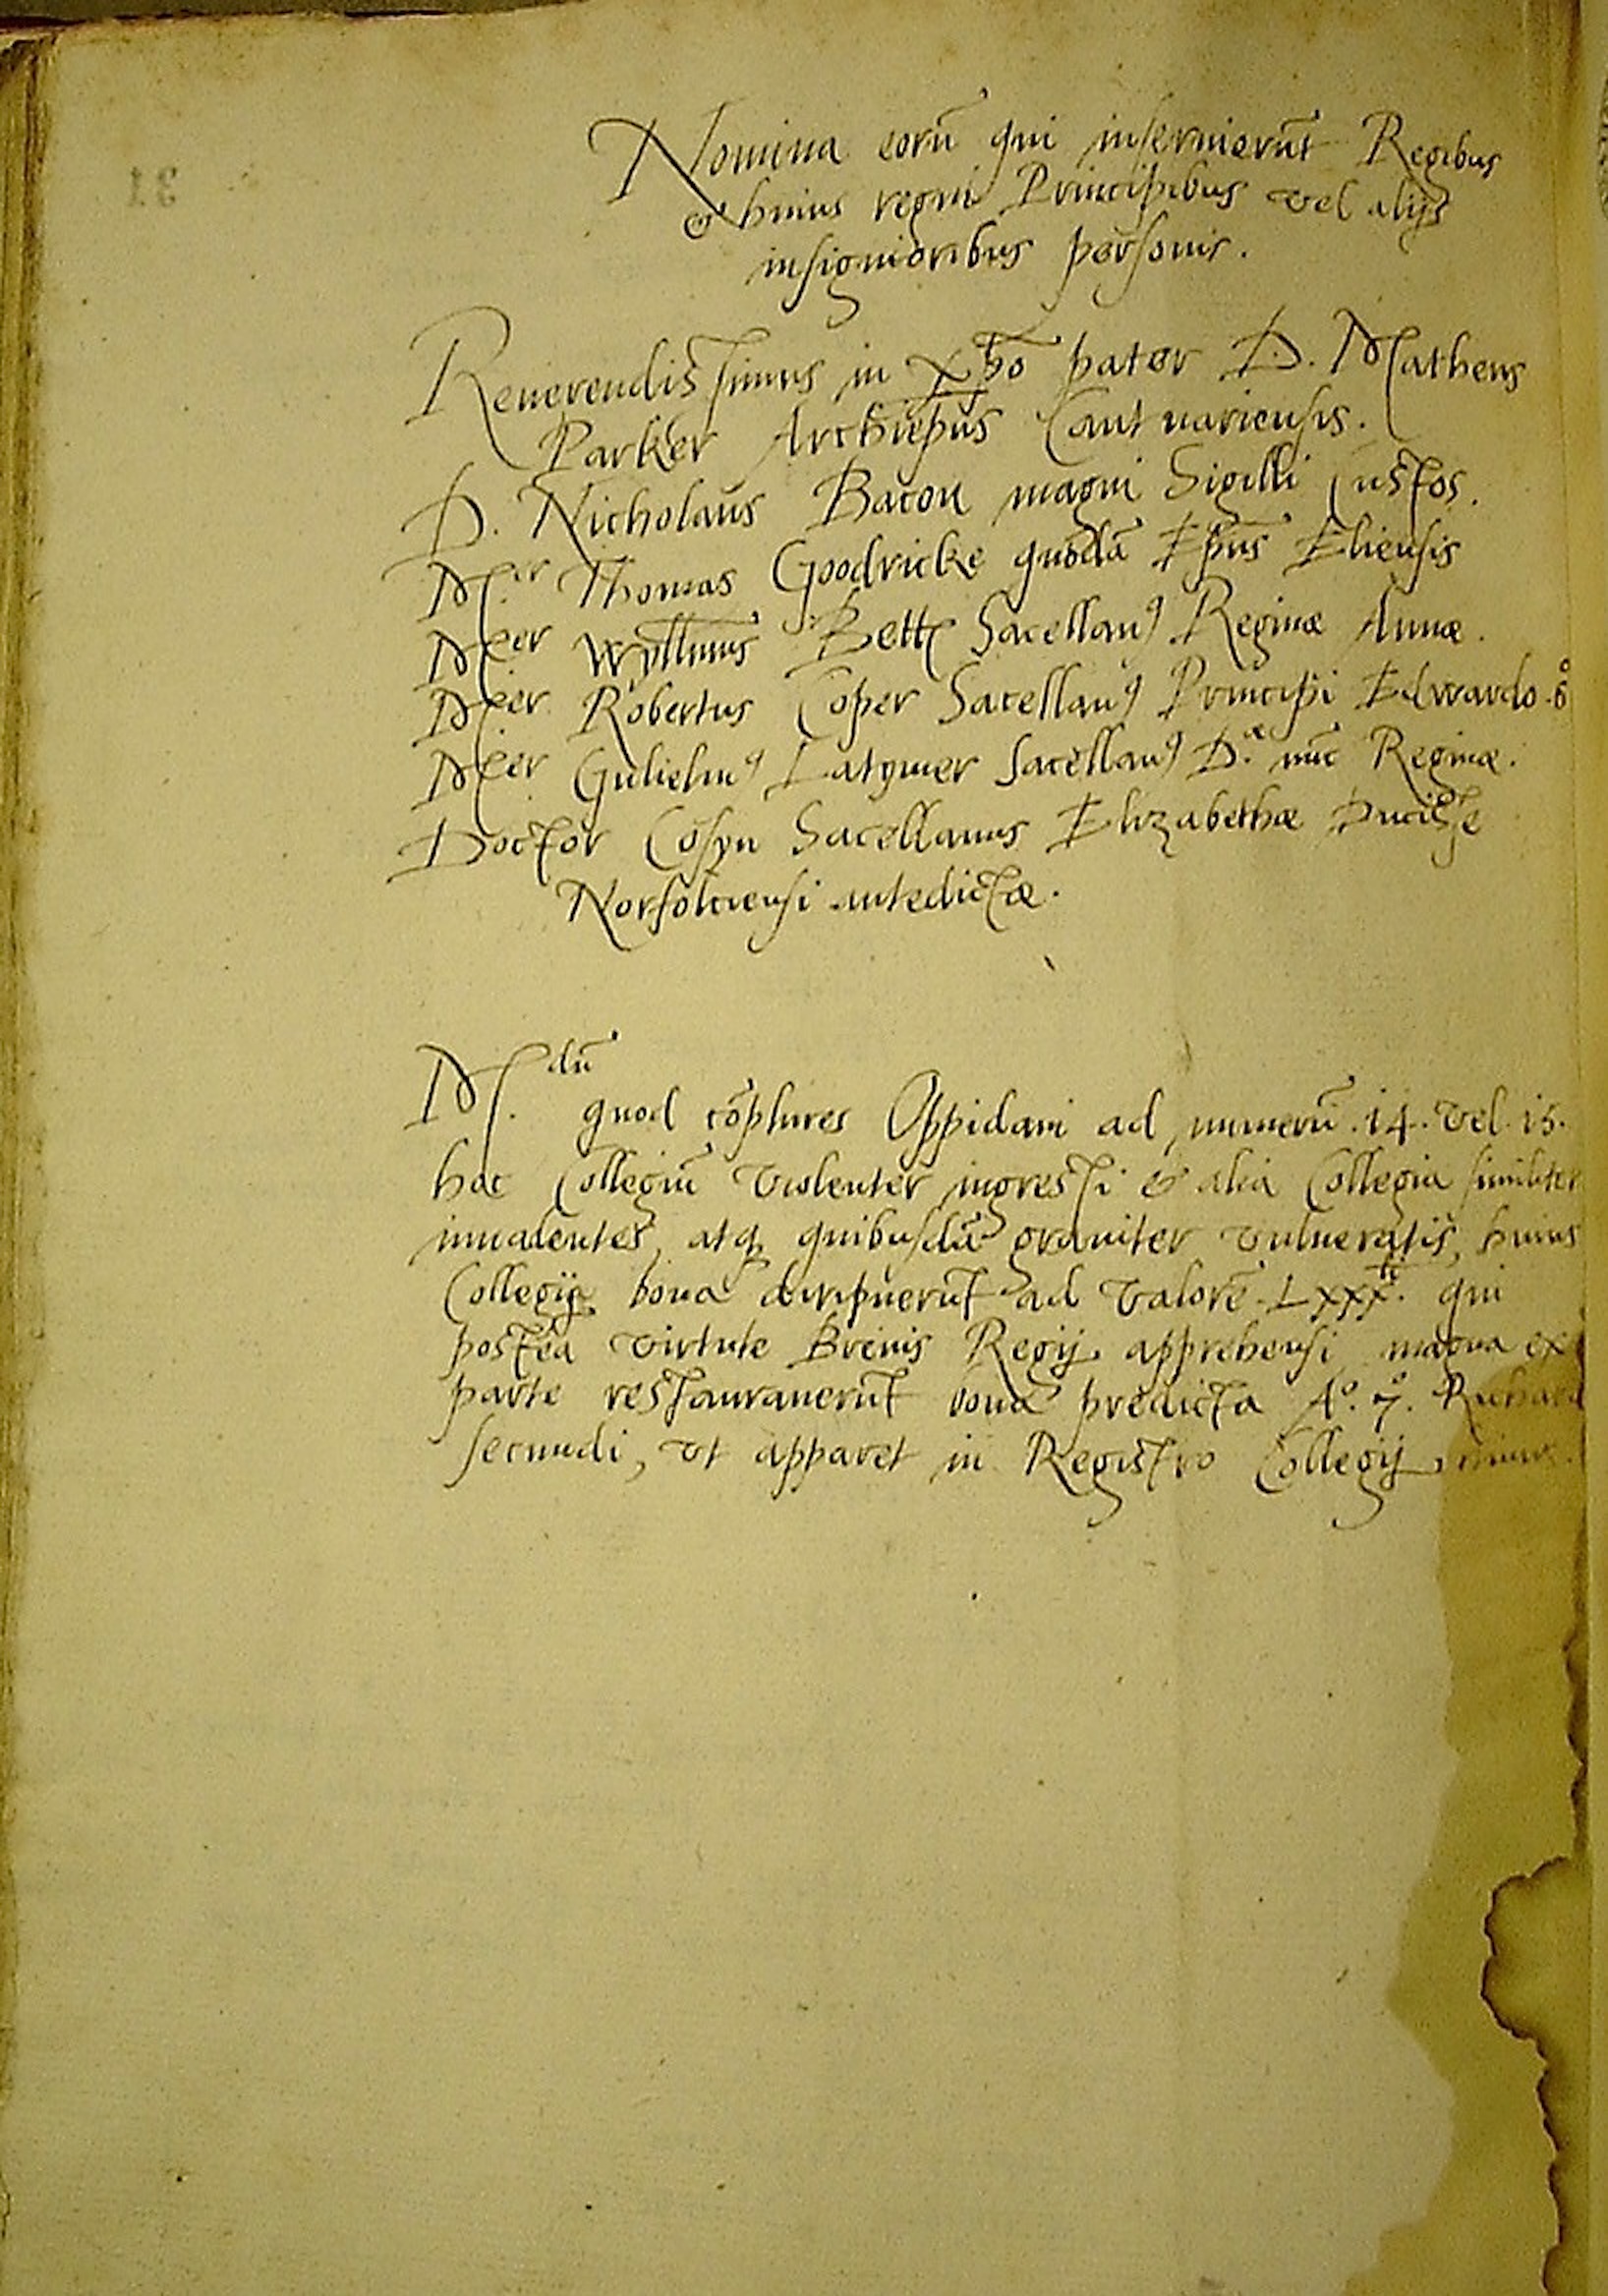 Nomina eorū qui inseruierūt Regibus
& huius regni Principibus vel alijs
insignioribus personis.
Reuerendissimus in Xp̄o pater D. Matheus
Parker Archiep̄us Cantuariensis.
D. Nicholaus Bacon magni Sigilli Custos.
Mer Thomas Goodricke quōdā Ep̄us Eliensis
Mer Wyllmus Bett Sacellanꝰ Reginæ Annæ.
Mer Robertus Coper Sacellanꝰ Principi Edwardo 6o
Mer Gulielmꝰ Latymer Sacellanꝰ D.æ nūc Reginæ.
Doctor Cosyn Sacellanus Elizabethæ Ducisse
Norfolciensi antedictæ.
M.dū quod cōplures Oppidani ad numerū .14. vel .15.
hoc Collegiū violenter ingressi & alia Collegia similiter
inuadentes, atq quibusdā grauiter vulneratis, huius
Collegij bona diripuerūt ad valorē Lxxx li. qui
postea virtute Breuis Regij apprehensi magna ex
parte restaurauerūt bona predicta Ao. 7o. Richard
secundi, vt apparet in Registro Collegij
31